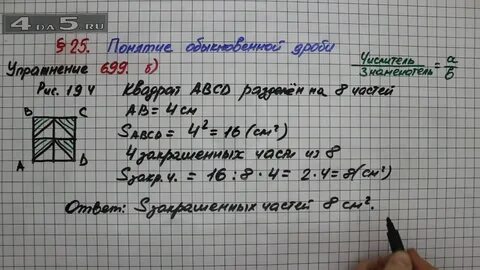 4DA5.RU
§25. Понятие обыкновенной дроби
Упражнение 699. б)
Числитель/Знаменатель = a/b
Рис. 194
Квадрат ABCD разделён на 8 частей
AB = 4 см
B C
S ABCD = 4² = 16 (см²)
4 закрашенных части из 8
A D
S закр.ч. = 16 : 8 · 4 = 2 · 4 = 8 (см²)
Ответ: S закрашенных частей 8 см².